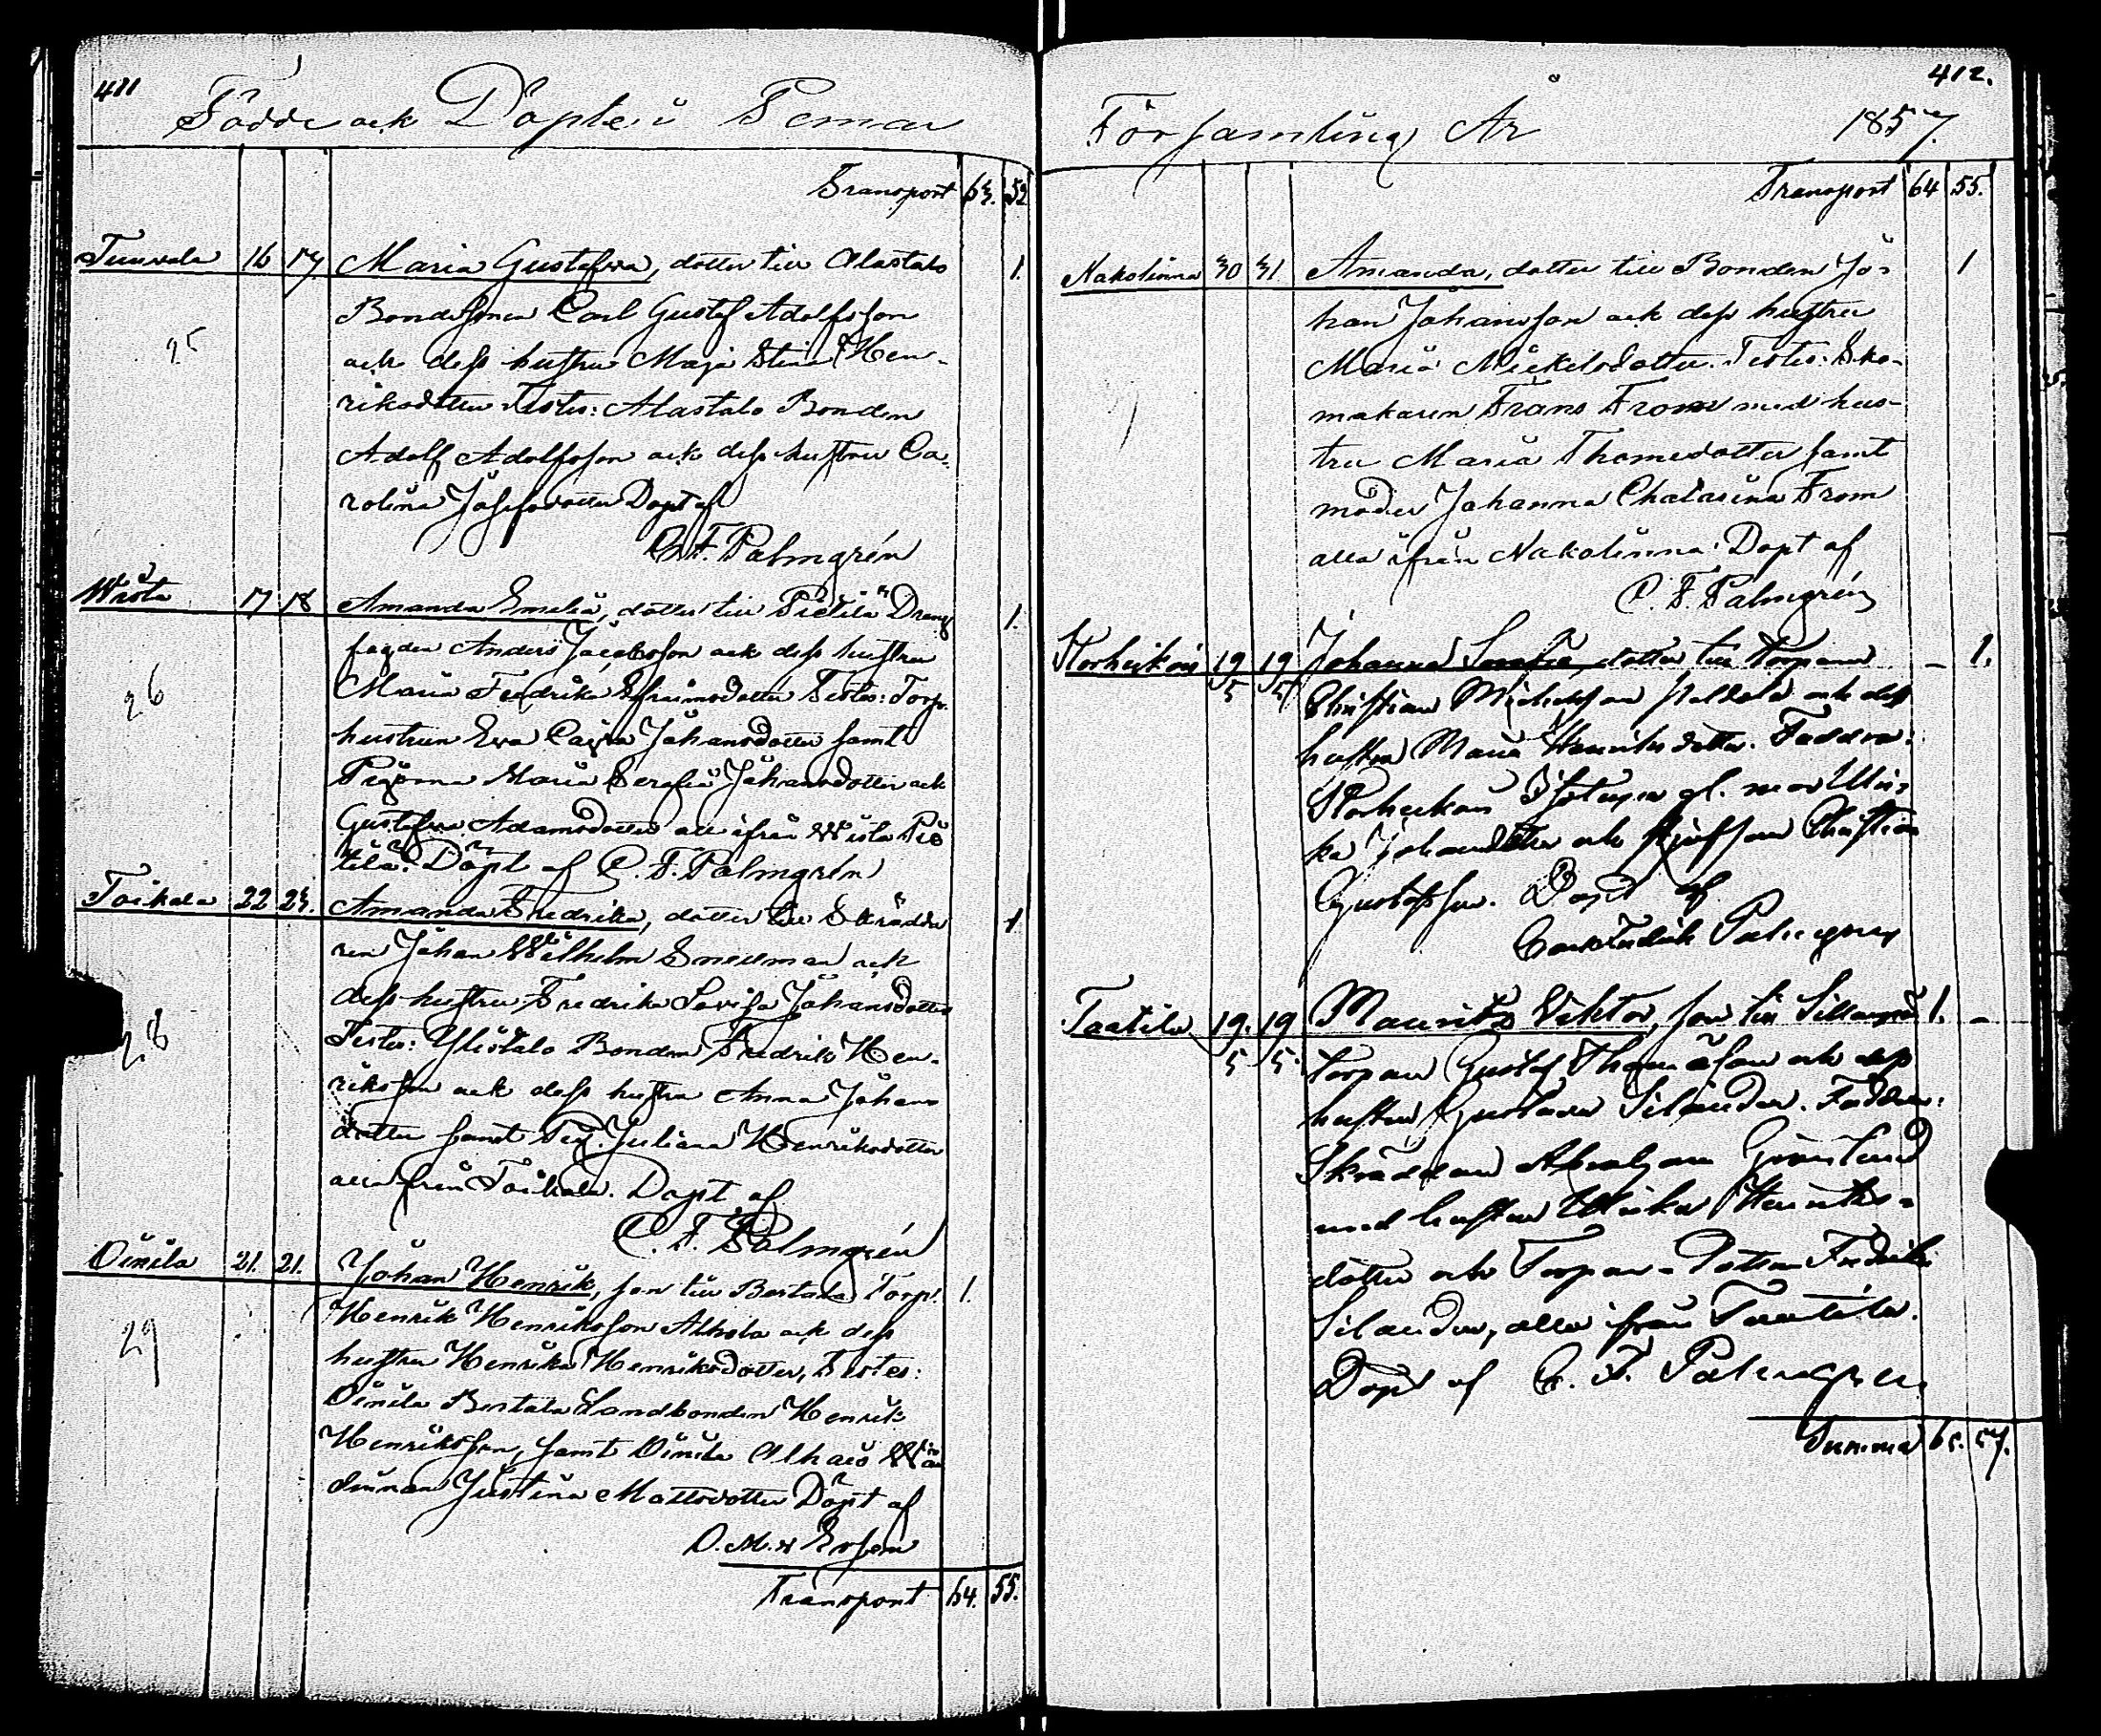 411
Födde och Döpte i Pemar
Transport 63. 52
Tuuvala 16 17 Maria Gustafva, dotter till Alastalo 1.
25
Bondesonen Carl Gustaf Adolfsson
och dess hustru Maja Stina Hen-
riksdotter Testes: Alastalo Bonden
Adolf Adolfsson och dess hustru Ca-
rolina Josefsdotter Döpt af
C. F. Palmgrén
Wista 17 18 Amanda Emelia, dotter till Pietilä Dreng 1.
26
fogden Anders Jacobsson och dess hustru
Maria Fredrika Efraimsdotter Testes: Torp.
hustrun Eva Cajsa Johansdotter samt
Pigorna Maria Serafia Johansdotter och
Gustafva Adamsdotter all ifrån Wista Pie
tilä. Döpt af C. F. Palmgrén
Toikala 22 23. Amanda Fredrika, dotter till Skrädda 1
28
ren Johan Wilhelm Snellman och
dess hustru Fredrika Lovisa Johansdotter
Testes: Ylistalo Bonden Fredrik Hen-
riksson och dess hustru Anna Johans
dotter samt Pig. Juliana Henriksdotter
alla från Toikala. Döpt af
C. F. Palmgrén
Oinila 21. 21. Johan Henrik, son till Bertala Torp. 1.
29
Henrik Henriksson Alhola och dess
hustru Henrika Henriksdotter, Testes:
Oinila Bertala Landbonden Henrik
Henriksson, samt Oinila Alhais
Justina Mattsdotter Döpt af
O. M. v Essen
Transport 64. 55.
412.
Församling År 1857.
Transport 64 55.
Nakolinna 30 31. Amanda, dotter till Bonden Jo- 1
han Johansson och dess hustru
Maria Mickelsdotter. Testes: Sko-
makaren Frans From med hus-
tru Maria Thomedotter samt
moder Johanna Chatarina From
alla ifrån Nakolinna. Döpt af
C. F. Palmgrén
Korheikois 19/5 19/5 Johanna Serafia, dotter till Torparen - 1.
Christian Michelsson och dess
hustru Maria Henriksdotter. Faddrar:
Korheikois gl. mor Ulri-
ka Johansdotter och Christian
Gustafsson. Döpt af
Carl Fredrik Palmgren
Taatila 19/5. 19/5. Mauritz Viktor, son till Sillanpää 1. -
torparen Gustaf Thomasson och dess
hustru Gustava Silander. Faddrar:
Skräddaren Abraham Grönlund
med hustru Ulrika Henriks-
dotter och Torpare-Dottern Fredrika
Silander, alla ifrån Taatila.
Döpt af C. F. Palmgren.
Summa 65. 57.